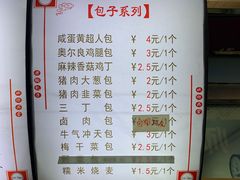 【包子系列】
咸蛋黄超人包 ¥ 4元/1个
奥尔良鸡腿包 ¥ 3元/1个
麻辣香菇鸡丁 ¥ 2.5元/1个
猪肉大葱包 ¥ 2元/1个
猪肉韭菜包 ¥ 2元/1个
三丁包 ¥ 2.5元/1个
卤肉包
牛气冲天包 ¥ 3元/1个
梅干菜包 ¥ 2.5元/1个
糯米烧麦 ¥ 1.5元/1个